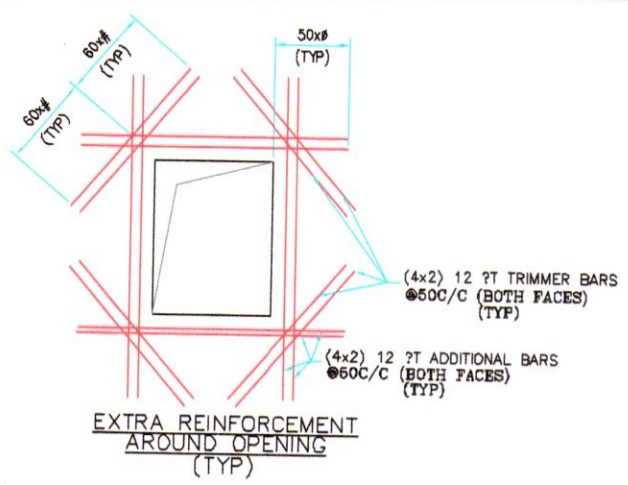 60x#
(TYP)
60x#
(TYP)
50xø
(TYP)
(4x2) 12 ?T TRIMMER BARS
@50C/C (BOTH FACES)
(TYP)
(4x2) 12 ?T ADDITIONAL BARS
@50C/C (BOTH FACES)
(TYP)
EXTRA REINFORCEMENT
AROUND OPENING
(TYP)